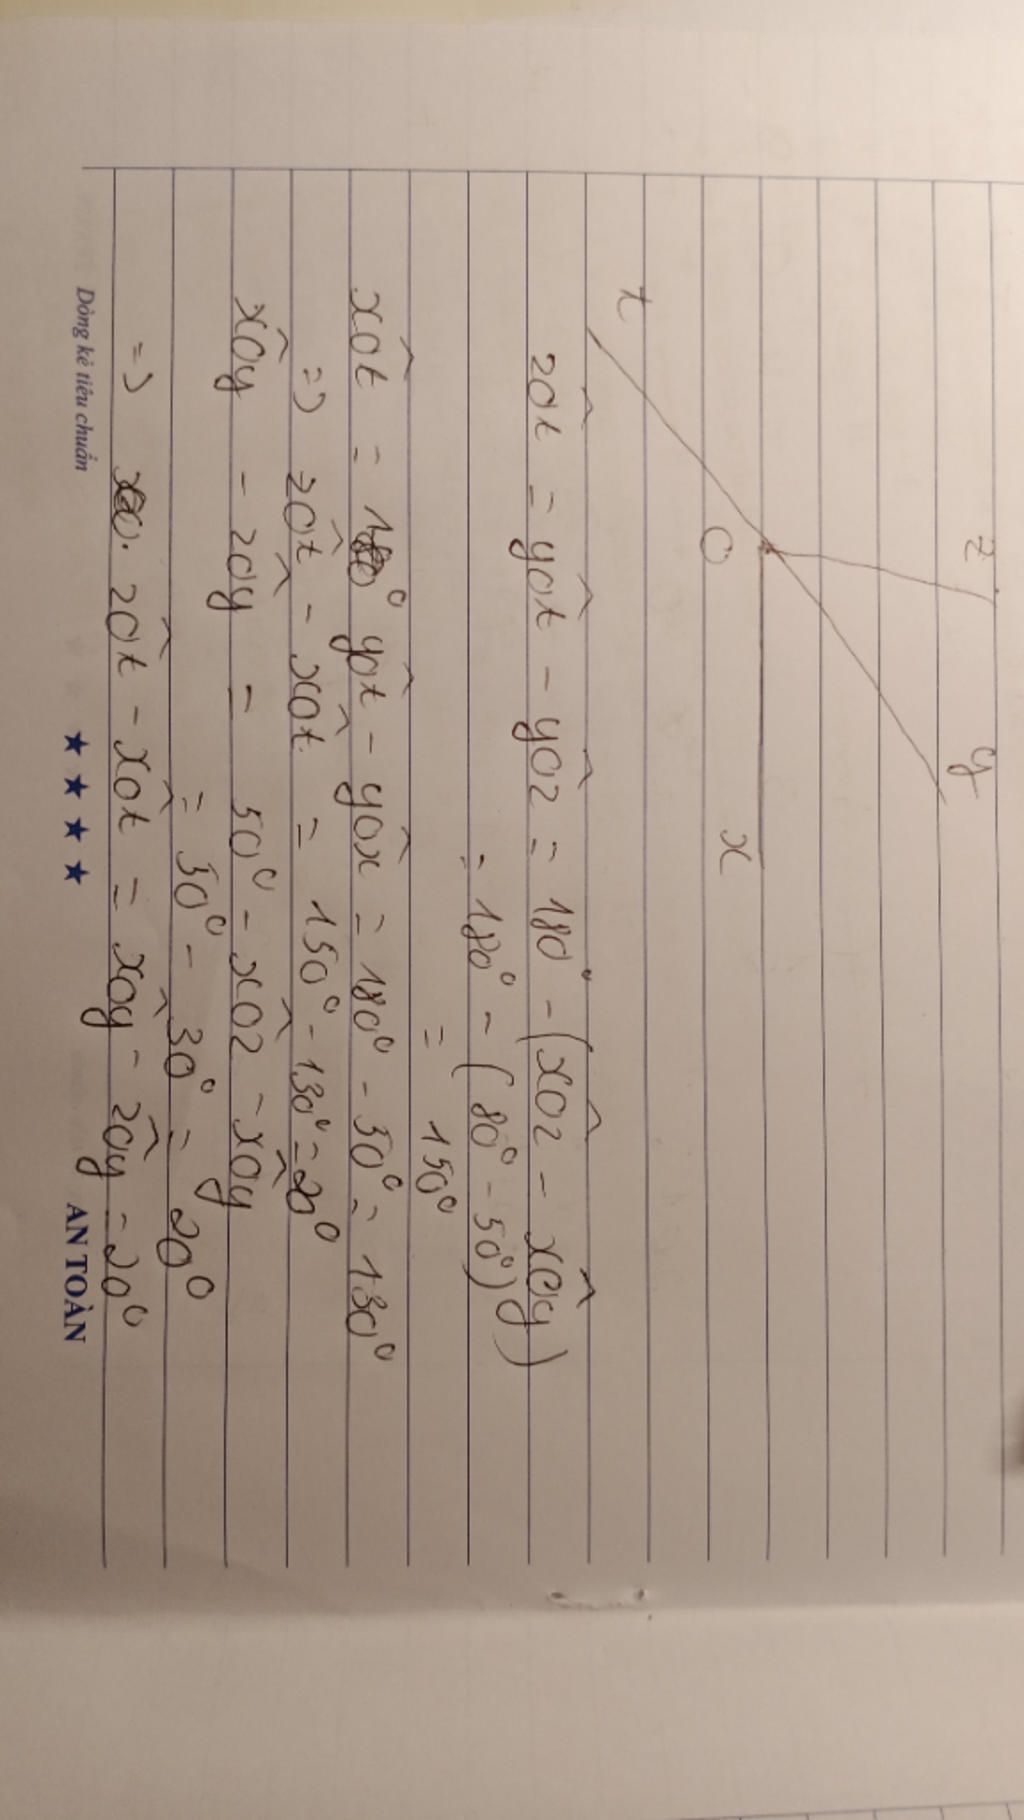 z
y
O
x
t
zÔt = yÔt - yÔz = 180° - (xÔz - xÔy)
= 180° - (80° - 50°)
= 150°
xÔt = yÔt - yÔx = 180° - 50° = 130°
=> zÔt - xÔt = 150° - 130° = 20°
xÔy - zÔy = 50° - xÔz - xÔy
= 50° - 30° = 20°
=> zÔt - xÔt = xÔy - zÔy = 20°
Dòng kẻ tiêu chuẩn ★ ★ ★ ★ AN TOÀN